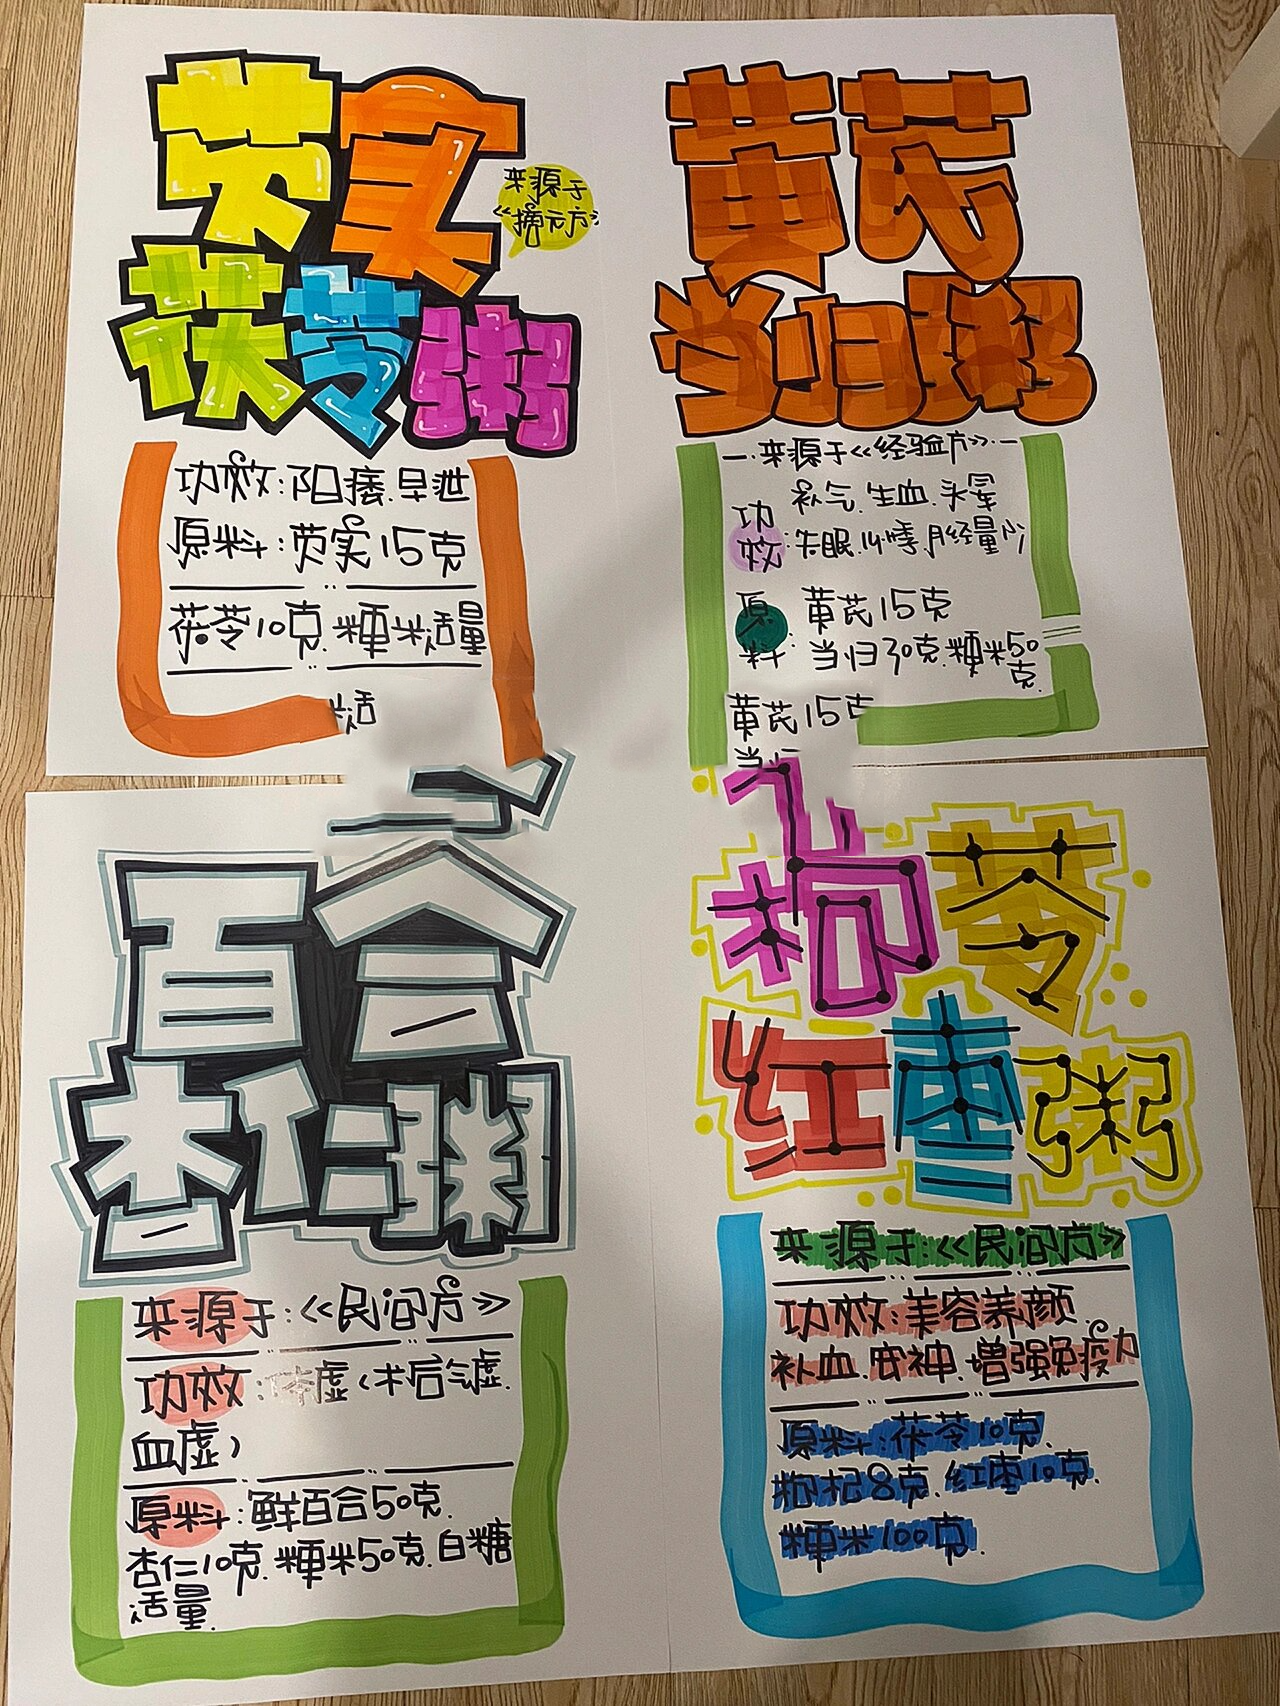 芡实
茯苓粥
来源于
功效:阳痿.早泄
原料:芡实15克
茯苓10克.粳米适量
黄芪
当归粥
一.来源于《经验方》.一
功效:补气.生血.头晕
失眠.心悸.月经量少
原料:黄芪15克
当归30克.粳米50克.
黄芪15克
百合
杏仁粥
来源于:《民间方》
功效:体虚(术后气虚.
血虚)
原料:鲜百合50克.
杏仁10克.粳米50克.白糖
适量.
枸苓
红枣粥
来源于:《民间方》
功效:美容养颜.
补血.安神.增强免疫力
原料:茯苓10克.
枸杞8克.红枣10克.
粳米100克.